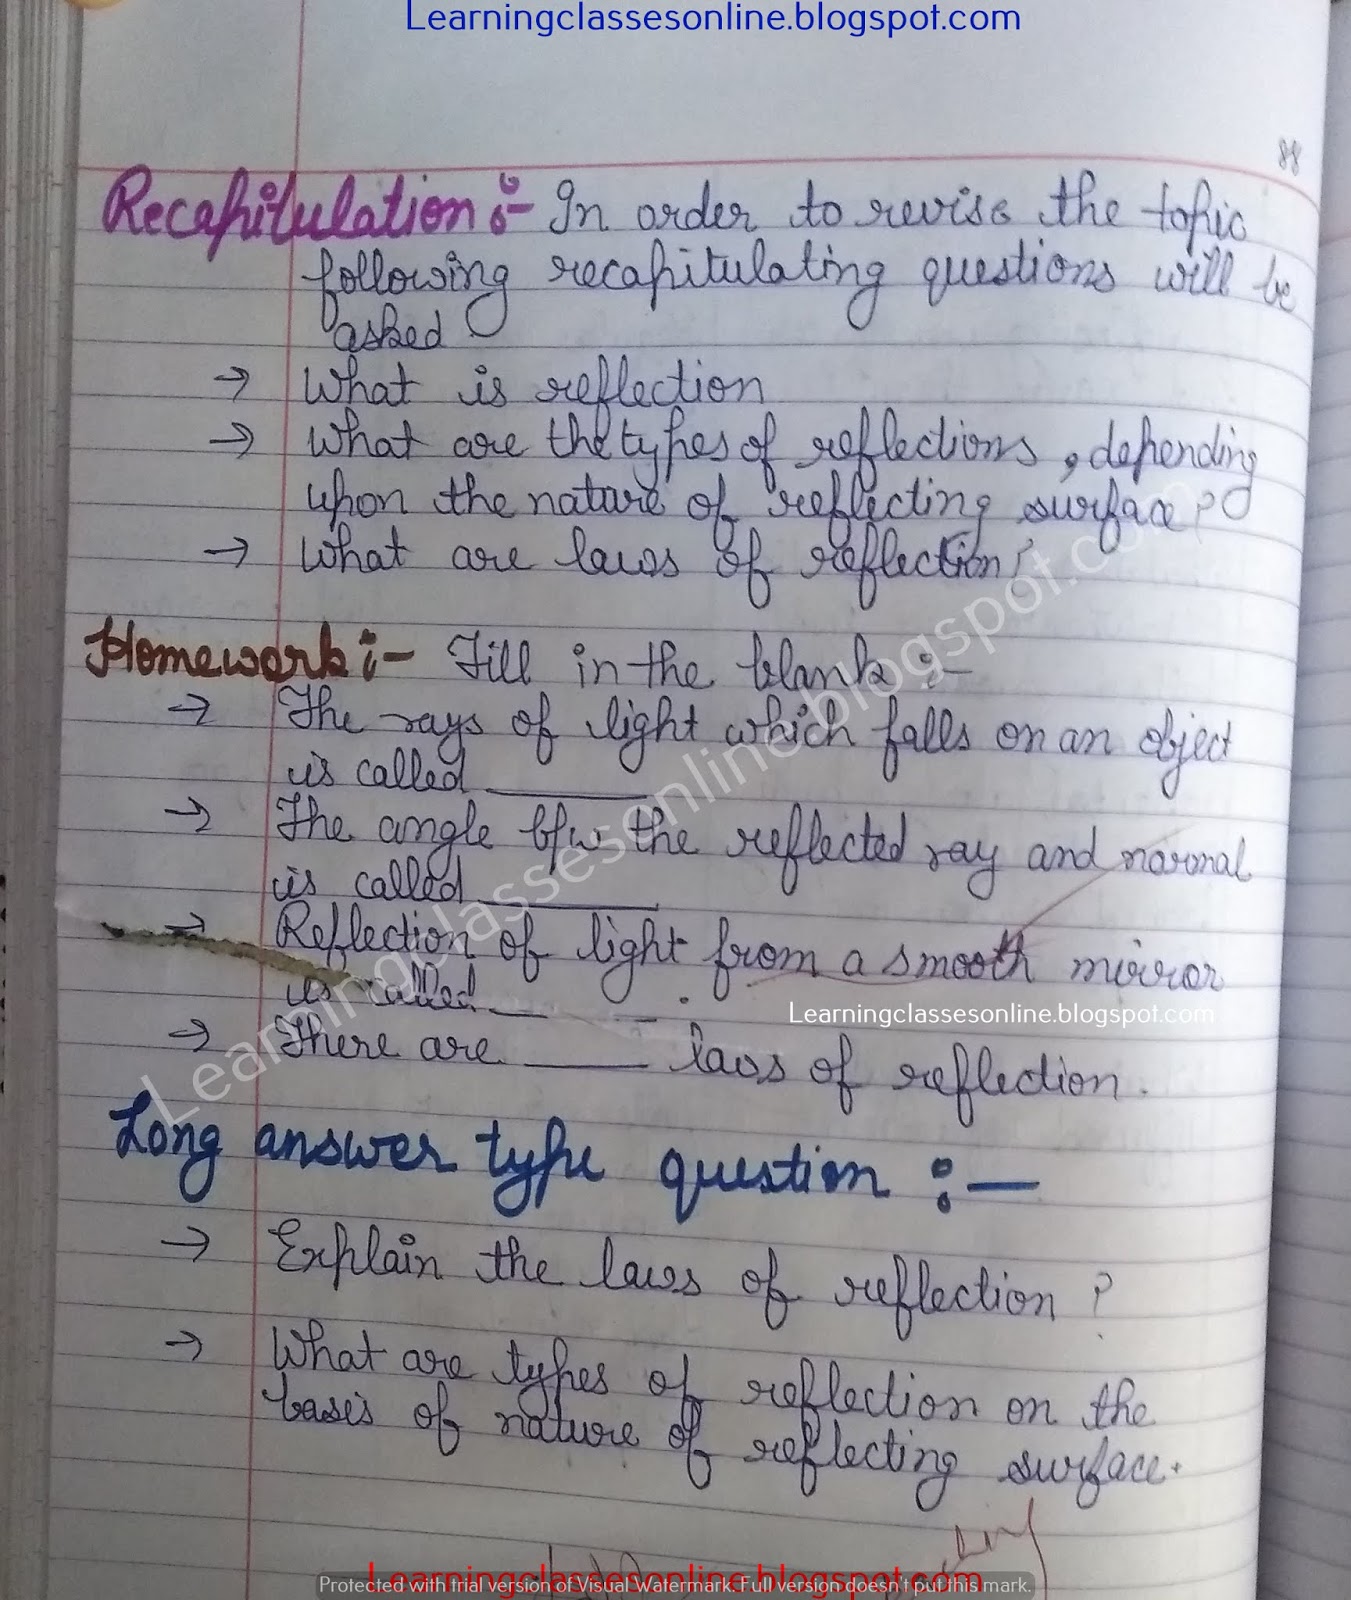 Learningclassesonline.blogspot.com
88
Recapitulation :- In order to revise the topic
following recapitulating questions will be
asked
→ What is reflection
→ What are the types of reflections, depending
upon the nature of reflecting surface?
→ What are laws of reflection?
Homework :- Fill in the blank :-
→ The rays of light which falls on an object
is called ______
→ The angle b/w the reflected ray and normal
is called ______
→ Reflection of light from a smooth mirror
is called ______
Learningclassesonline.blogspot.com
→ There are ______ laws of reflection.
Learningclassesonline.blogspot.com
Long answer type question :-
→ Explain the laws of reflection?
→ What are types of reflection on the
basis of nature of reflecting surface.
Learningclassesonline.blogspot.com
Protected with trial version of Visual Watermark. Full version doesn't put this mark.